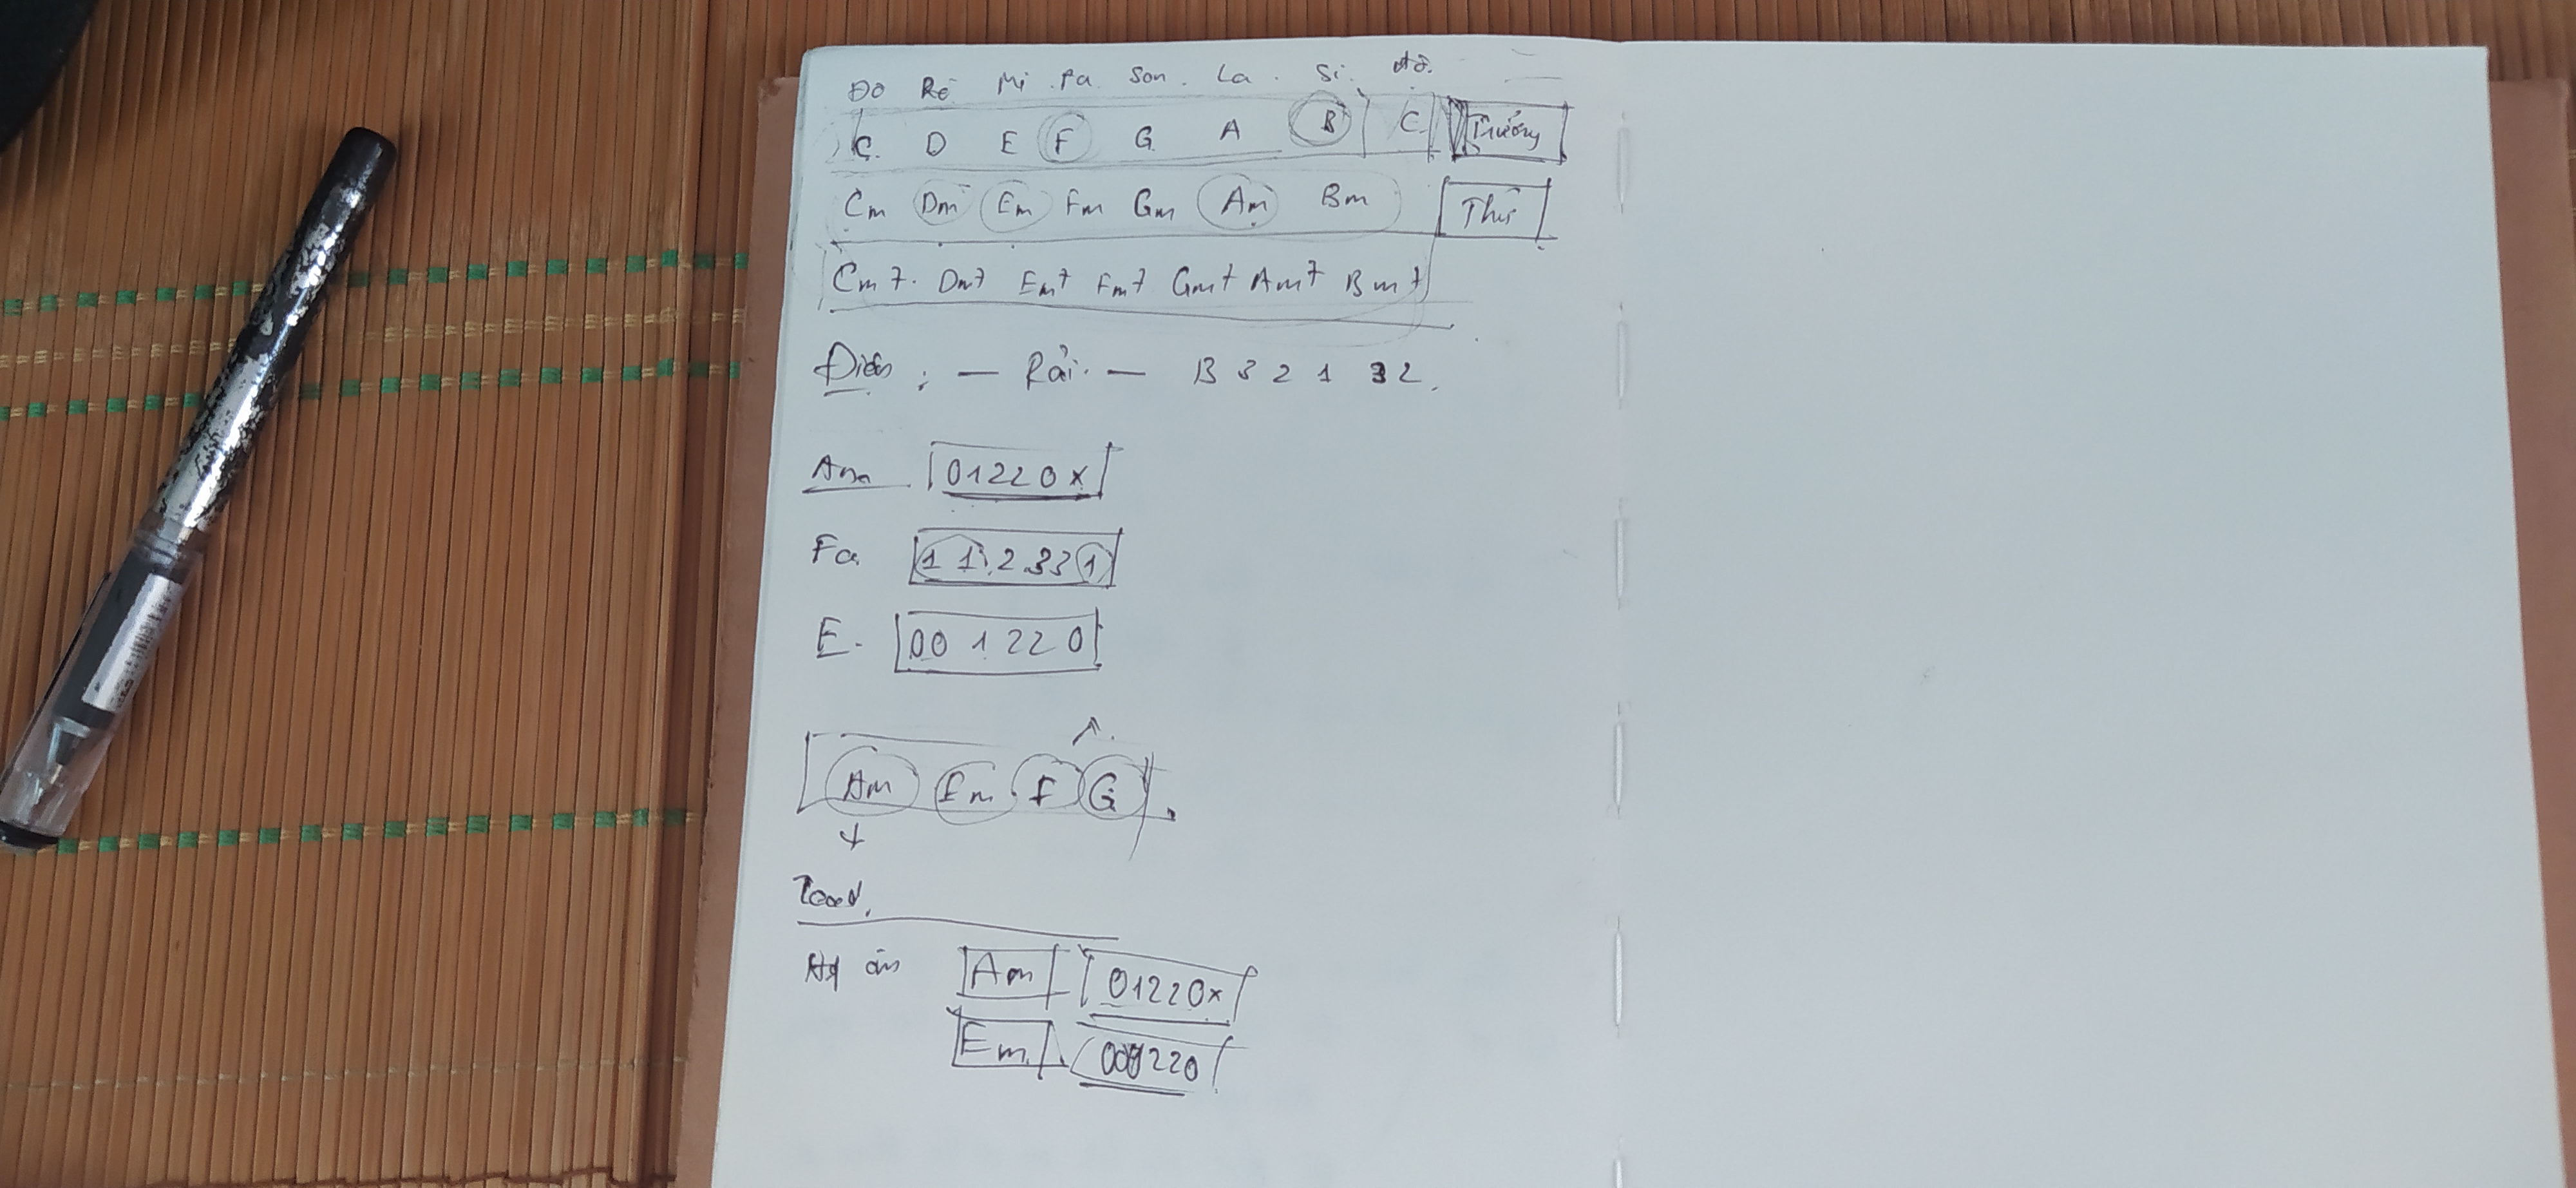 Đồ Rê Mi Fa Son La Si Đố.
C D E F G A B C Trưởng
Cm Dm Em Fm Gm Am Bm Thứ
Cm7. Dm7 Em7 Fm7 Gm7 Am7 Bm7
Điệu : — Rải. — B 3 2 1 3 2.
Am 01220x
Fa 1 1 2 3 3 1
E. 00 1 22 0
Am Em F G
Hợp âm Am 01220x
Em 000220